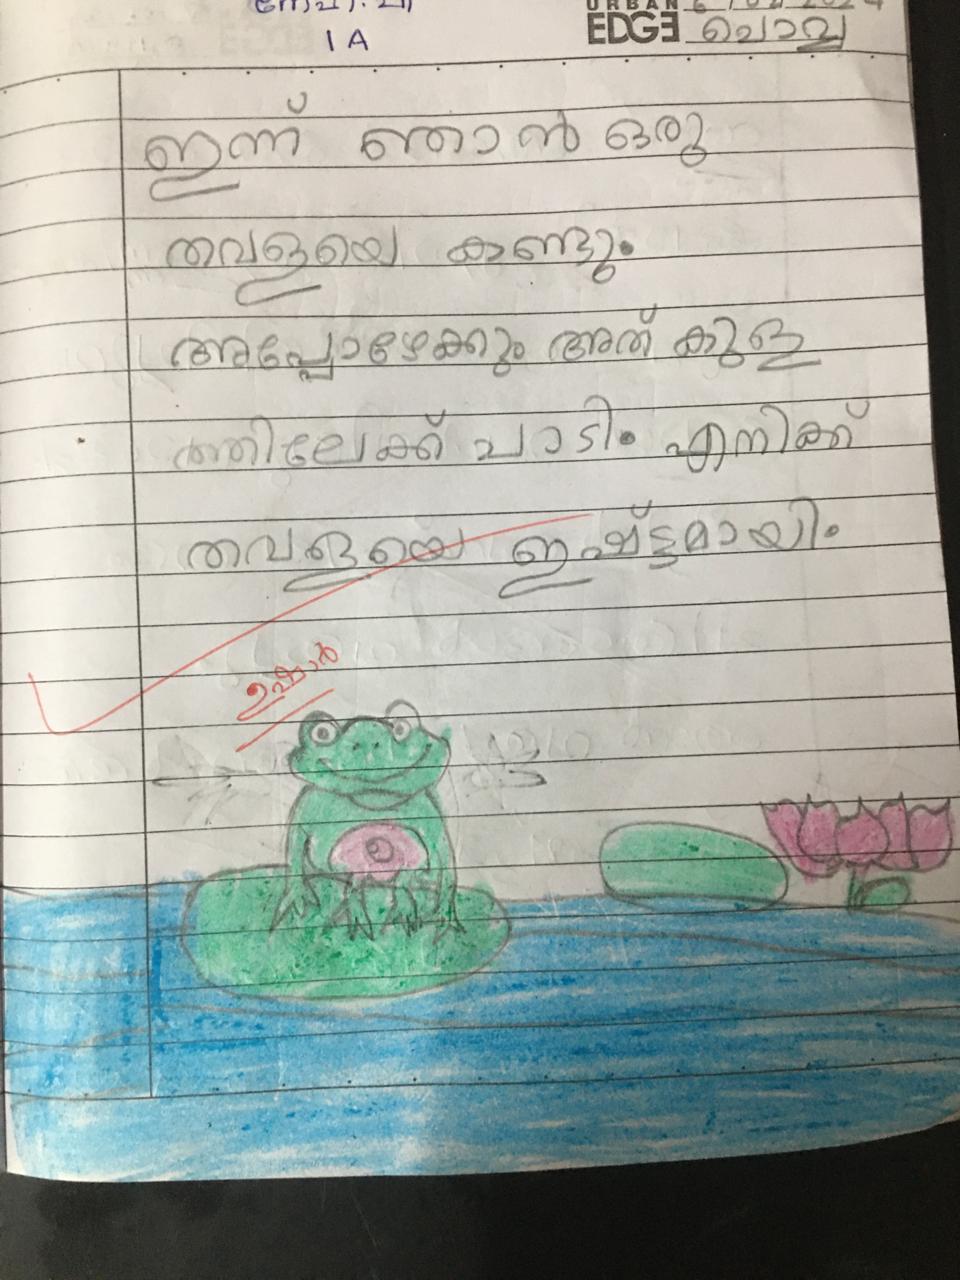 URBAN
EDGE ചൊവ്വ
1 A
ഇന്ന് ഞാൻ ഒരു
തവളയെ കണ്ടു.
അപ്പോഴേക്കും അത് കുള
ത്തിലേക്ക് ചാടി. എനിക്ക്
തവളയെ ഇഷ്ട്ടമായി.
ഉഷാർ